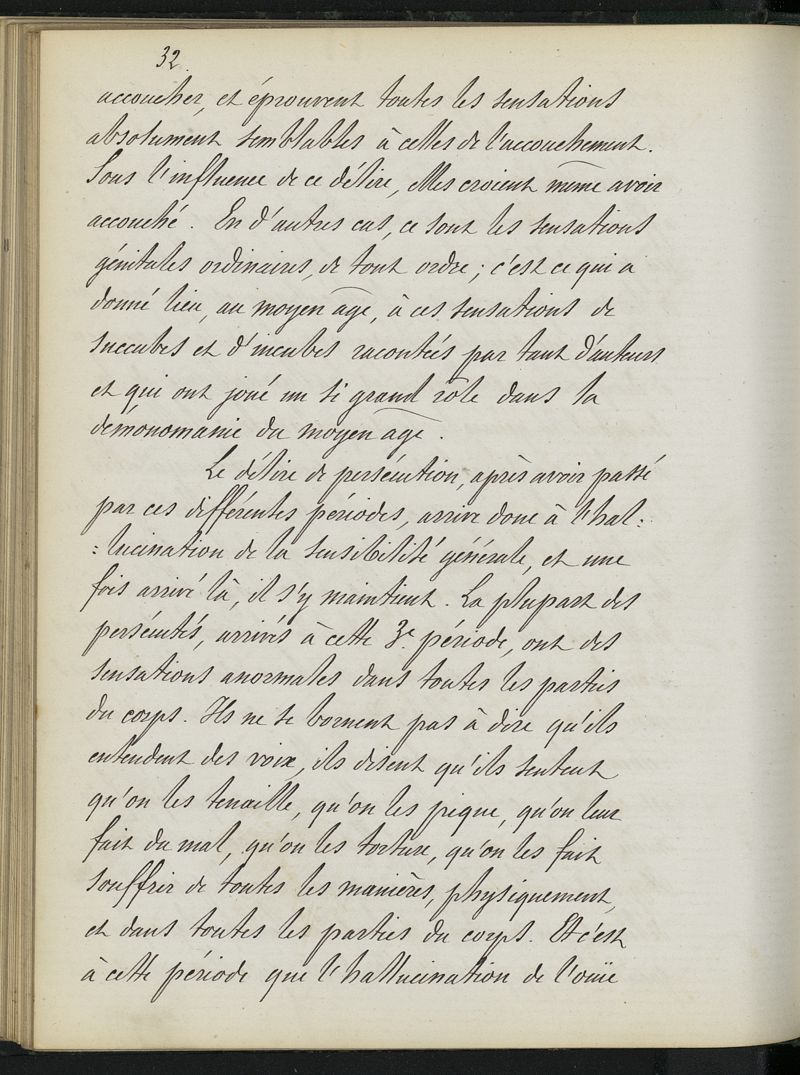 32.
accoucher, et éprouvent toutes les sensations
absolument semblables à celles de l'accouchement.
Sous l'influence de ce délire, elles croient même avoir
accouché. En d'autres cas, ce sont les sensations
génitales ordinaires, de tout ordre; c'est ce qui a
donné lieu, au moyen âge, à ces sensations de
succubes et d'incubes racontées par tant d'auteurs
et qui ont joué un si grand rôle dans la
démonomanie du moyen âge.
Le délire de persécution, après avoir passé
par ces différentes périodes, arrive donc à l'hal:
:lucination de la sensibilité générale, et une
fois arrivé là, il s'y maintient. La plupart des
persécutés, arrivés à cette 3e période, ont des
sensations anormales dans toutes les parties
du corps. Ils ne se bornent pas à dire qu'ils
entendent des voix, ils disent qu'ils sentent
qu'on les tenaille, qu'on les pique, qu'on leur
fait du mal, qu'on les torture, qu'on les fait
souffrir de toutes les manières, physiquement,
et dans toutes les parties du corps. Et c'est
à cette période que l'hallucination de l'ouïe